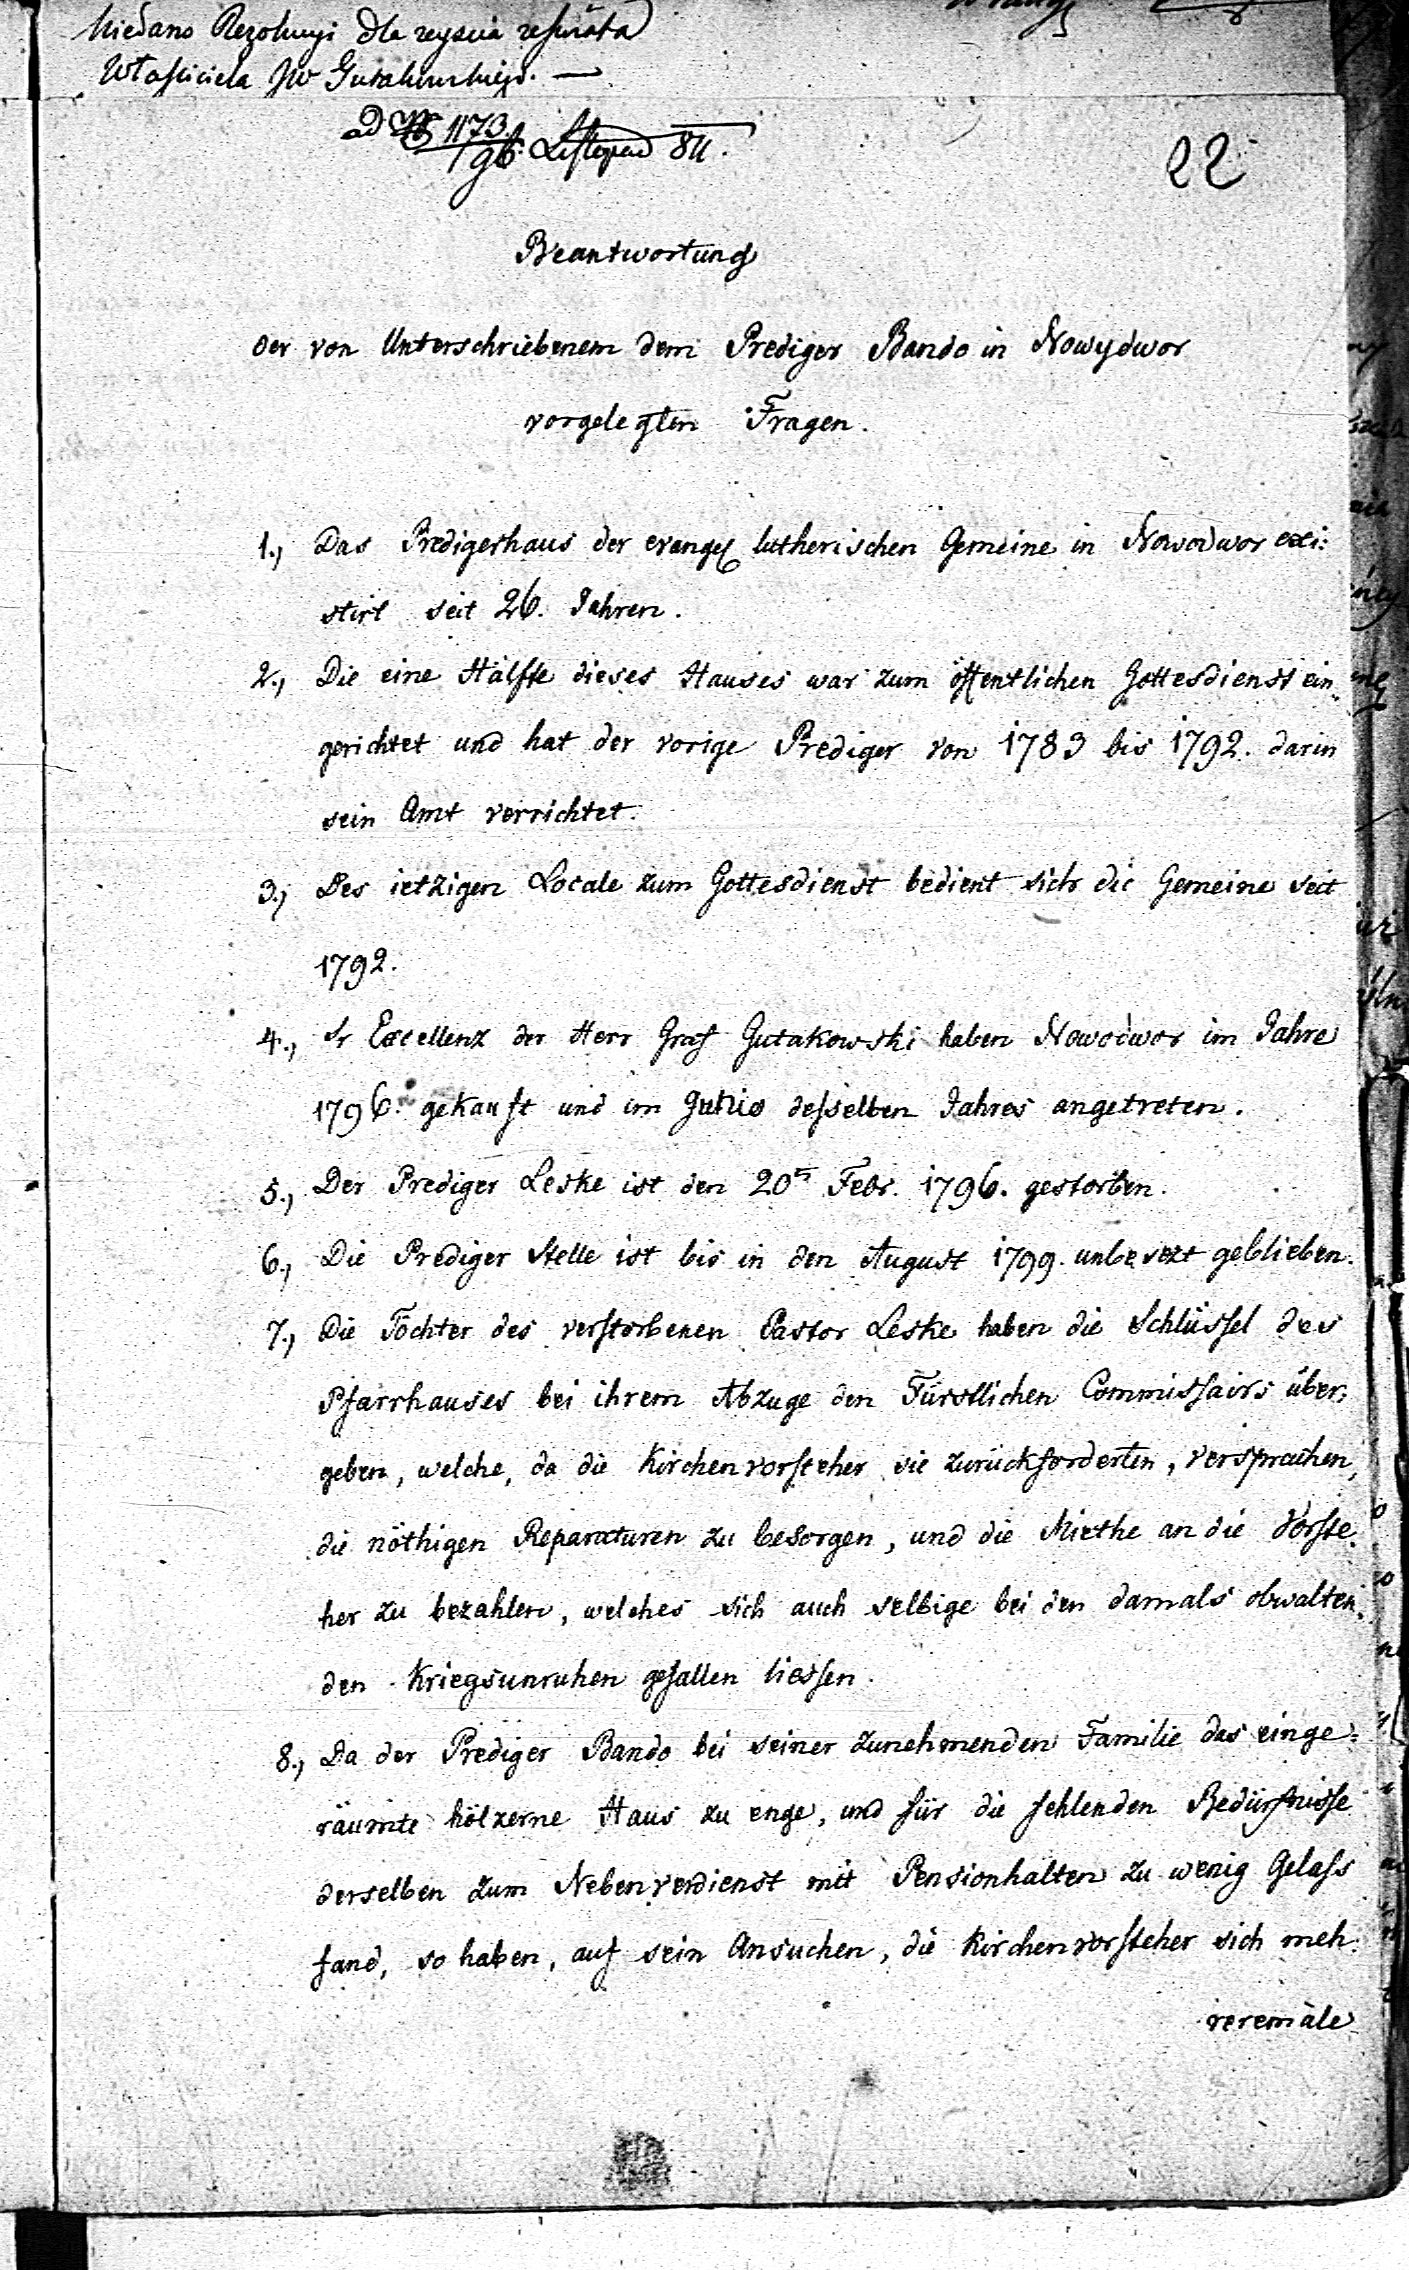 Niedano Rezolucyi dla zeyścia ze świata
Właściciela JW Gutakowskiego. —
ad № 1173.
9b. Listopad 811.
22
Beantwortung
der von Unterschriebenem dem Prediger Bando in Nowydwor
vorgelegten Fragen.
1., Das Predigerhaus der evangel lutherischen Gemeine in Nowodwor exi:
stirt seit 26. Jahren.
2., Die eine Hälfte dieses Hauses war zum öffentlichen Gottesdienst ein
gerichtet und hat der vorige Prediger von 1783 bis 1792. darin
sein Amt verrichtet.
3., Des ietzigen Locale zum Gottesdienst bedient sich die Gemeine seit
1792.
4., Sr Excellenz der Herr Graf Gutakowski haben Nowodwor im Jahre
1796. gekauft und im Junio desselben Jahres angetreten.
5., Der Prediger Leske ist den 20n Febr. 1796. gestorben.
6., Die Prediger Stelle ist bis in den August 1799. unbesezt geblieben.
7., Die Töchter des verstorbenen Pastor Leske haben die Schlüssel des
Pfarrhauses bei ihrem Abzuge den Fürstlichen Commissairs über:
geben, welche, da die Kirchenvorsteher sie zurückforderten, versprachen,
die nöthigen Reparaturen zu besorgen, und die Miethe an die Vorste
her zu bezahlen, welches sich auch selbige bei den damals obwalten
den Kriegsunruhen gefallen liessen.
8., Da der Prediger Bando bei seiner zunehmenden Familie das einge:
räumte hölzerne Haus zu enge, und für die fehlenden Bedürfnisse
derselben zum Nebenverdienst mit Pensionhalten zu wenig Gelass
fand, so haben, auf sein Ansuchen, die Kirchenvorsteher sich meh:
reremale